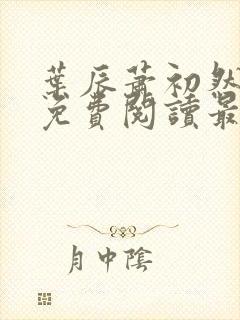 葉辰蕭初然
免費閱讀最
月中陰